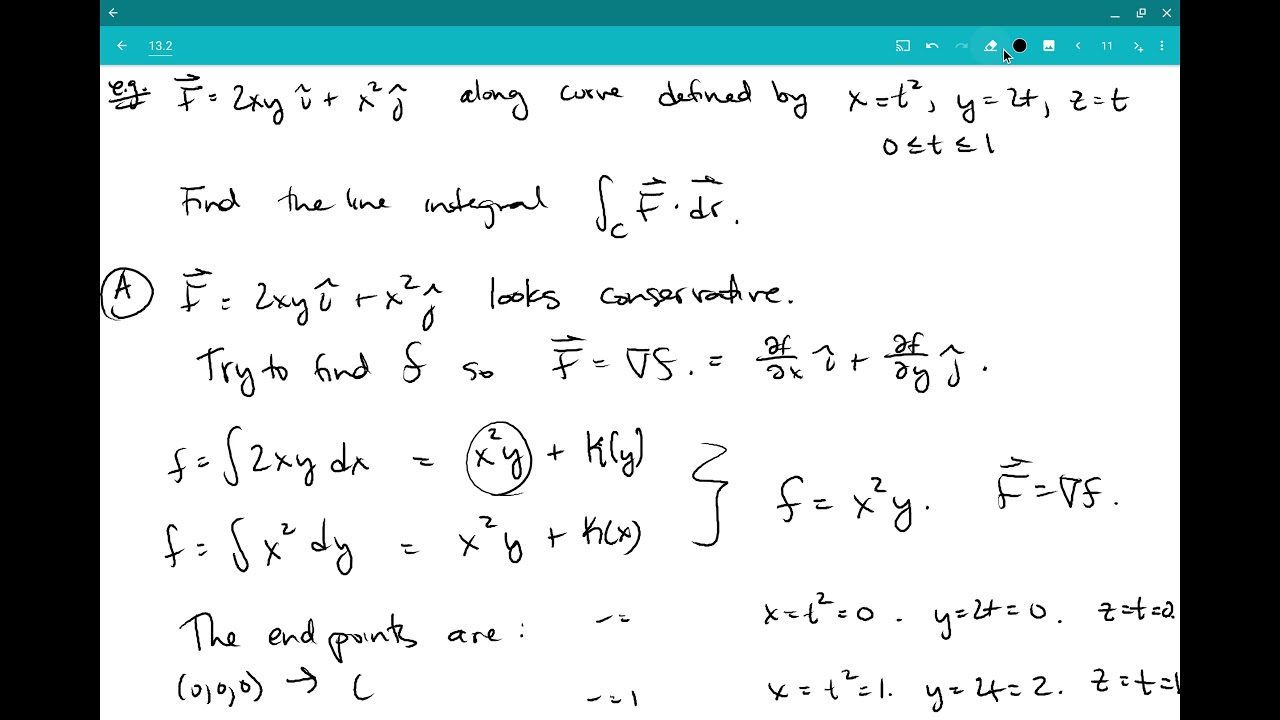 13.2
11
e.g. F⃗ = 2xy î + x² ĵ along curve defined by x = t², y = 2t, z = t
0 ≤ t ≤ 1
Find the line integral ∫_C F⃗ · dr⃗.
(A) F⃗ = 2xy î + x² ĵ looks conservative.
Try to find f so F⃗ = ∇f. = ∂f/∂x î + ∂f/∂y ĵ.
f = ∫ 2xy dx = x²y + K(y)
f = x²y. F⃗ = ∇f.
f = ∫ x² dy = x²y + K(x)
The end points are: x = t² = 0. y = 2t = 0. z = t = 0.
(0,0,0) → ( = 1 x = t² = 1. y = 2t = 2. z = t = 1